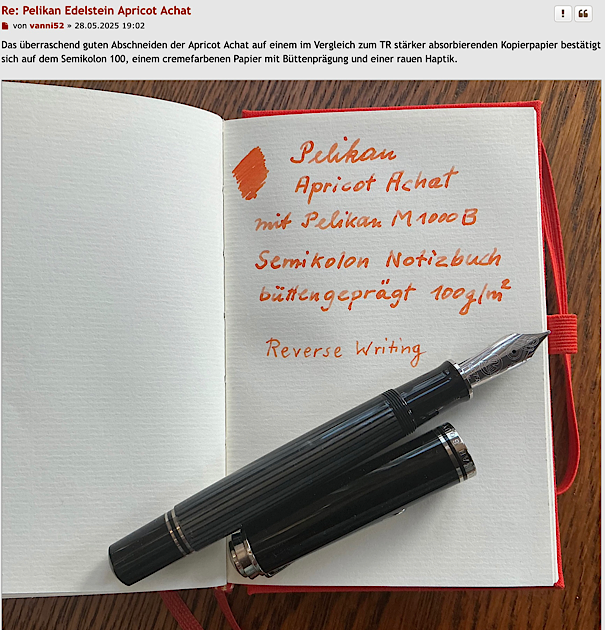 Re: Pelikan Edelstein Apricot Achat
von vanni52 » 28.05.2025 19:02
Das überraschend guten Abschneiden der Apricot Achat auf einem im Vergleich zum TR stärker absorbierenden Kopierpapier bestätigt
sich auf dem Semikolon 100, einem cremefarbenen Papier mit Büttenprägung und einer rauen Haptik.
Pelikan
Apricot Achat
mit Pelikan M1000 B
Semikolon Notizbuch
büttengeprägt 100g/m²
Reverse Writing